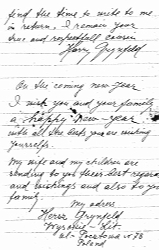 find the time to write to me
in return. I remain your
true and respectfull cousin
Harry Grynfeld
On the coming new-year
I wish you and your family
a happy new-year
with all the best you are wishing
yourselfs.
My wife and my children are
sending to you their best regards
and wishings and also to your
family.
My adress
Hersz Grynfeld
Wyszków - Lit
ul. 78
Poland